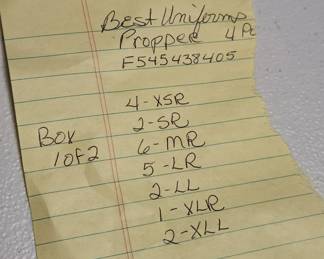 Best Uniforms
Propper 4 Pc
F545438405
4-XSR
2-SR
6-MR
5-LR
2-LL
1-XLR
2-XLL
Box
1 of 2